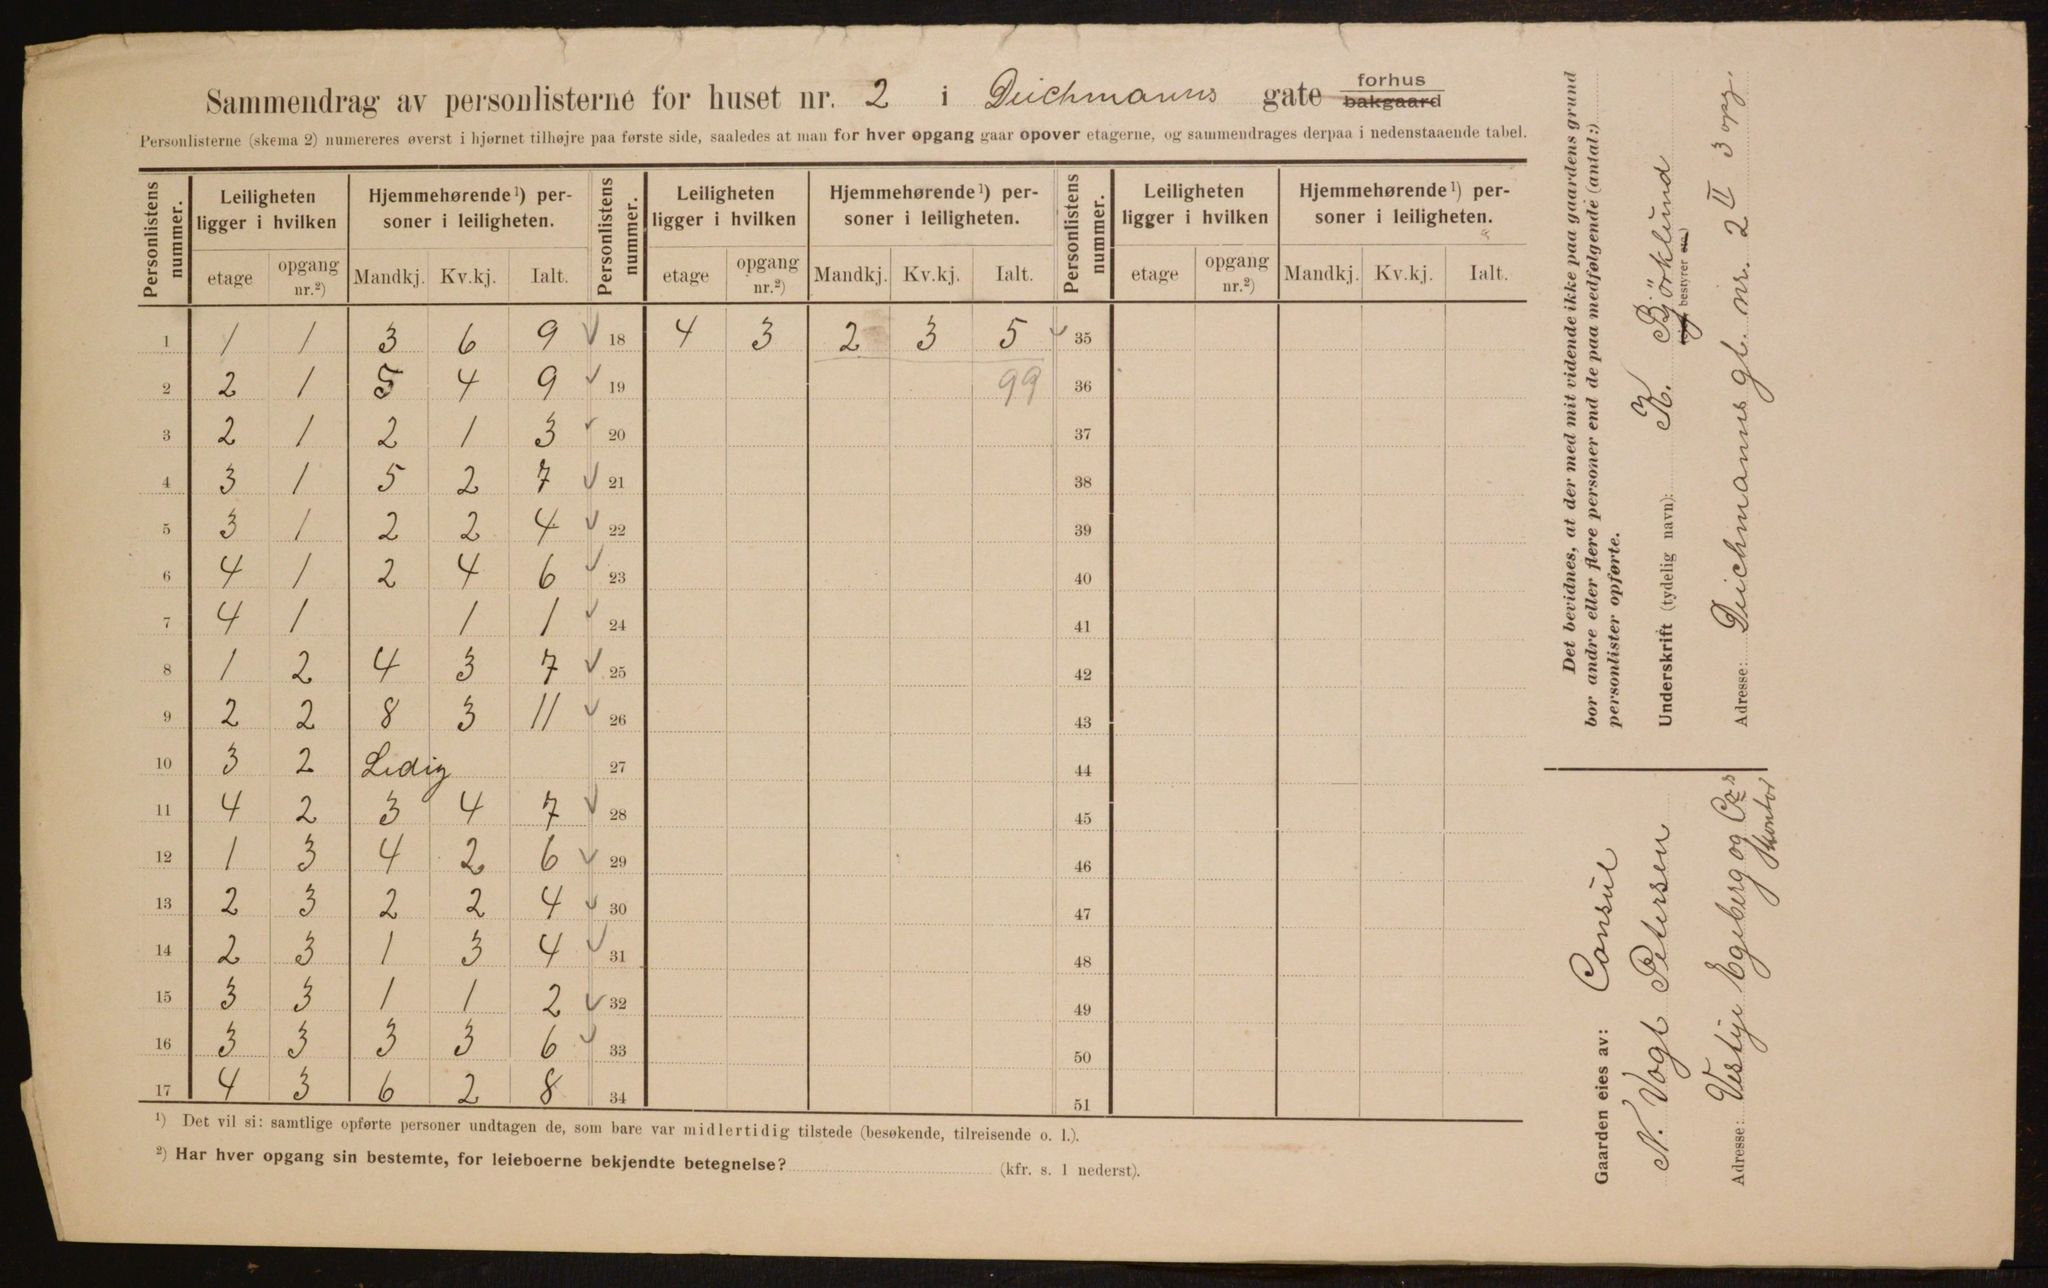 Sammendrag av personlisterne for huset nr. 2 i Deichmanns gate forhus bakgaard
Personlisterne (skema 2) numereres øverst i hjørnet tilhøjre paa første side, saaledes at man for hver opgang gaar opover etagerne, og sammendrages derpaa i nedenstaaende tabel.
Personlistens nummer. Leiligheten ligger i hvilken Hjemmehørende ¹) personer i leiligheten. Personlistens nummer. Leiligheten ligger i hvilken Hjemmehørende ¹) personer i leiligheten. Personlistens nummer. Leiligheten ligger i hvilken Hjemmehørende ¹) personer i leiligheten.
etage opgang nr.²) Mandkj. Kv.kj. Ialt. etage opgang nr.²) Mandkj. Kv.kj. Ialt. etage opgang nr.²) Mandkj. Kv.kj. Ialt.
1 1 1 3 6 9 ✓ 18 4 3 2 3 5 ✓ 35
2 2 1 5 4 9 ✓ 19 99 36
3 2 1 2 1 3 ✓ 20 37
4 3 1 5 2 7 ✓ 21 38
5 3 1 2 2 4 ✓ 22 39
6 4 1 2 4 6 ✓ 23 40
7 4 1 1 1 ✓ 24 41
8 1 2 4 3 7 ✓ 25 42
9 2 2 8 3 11 ✓ 26 43
10 3 2 Ledig 27 44
11 4 2 3 4 7 ✓ 28 45
12 1 3 4 2 6 ✓ 29 46
13 2 3 2 2 4 ✓ 30 47
14 2 3 1 3 4 ✓ 31 48
15 3 3 1 1 2 ✓ 32 49
16 3 3 3 3 6 ✓ 33 50
17 4 3 6 2 8 34 51
¹) Det vil si: samtlige opførte personer undtagen de, som bare var midlertidig tilstede (besøkende, tilreisende o. l.).
²) Har hver opgang sin bestemte, for leieboerne bekjendte betegnelse? (kfr. s. 1 nederst).
Det bevidnes, at der med mit vidende ikke paa gaardens grund
bor andre eller flere personer end de paa medfølgende (antal:)
personlister opførte.
Underskrift (tydelig navn): K. Björklund
bestyrer
Adresse: Deichmanns gt. nr. 2 II 3 opg.
Gaarden eies av: Consul
N. Vogt Petersen
Adresse: Vestye Egeberg og Co s
Kontor